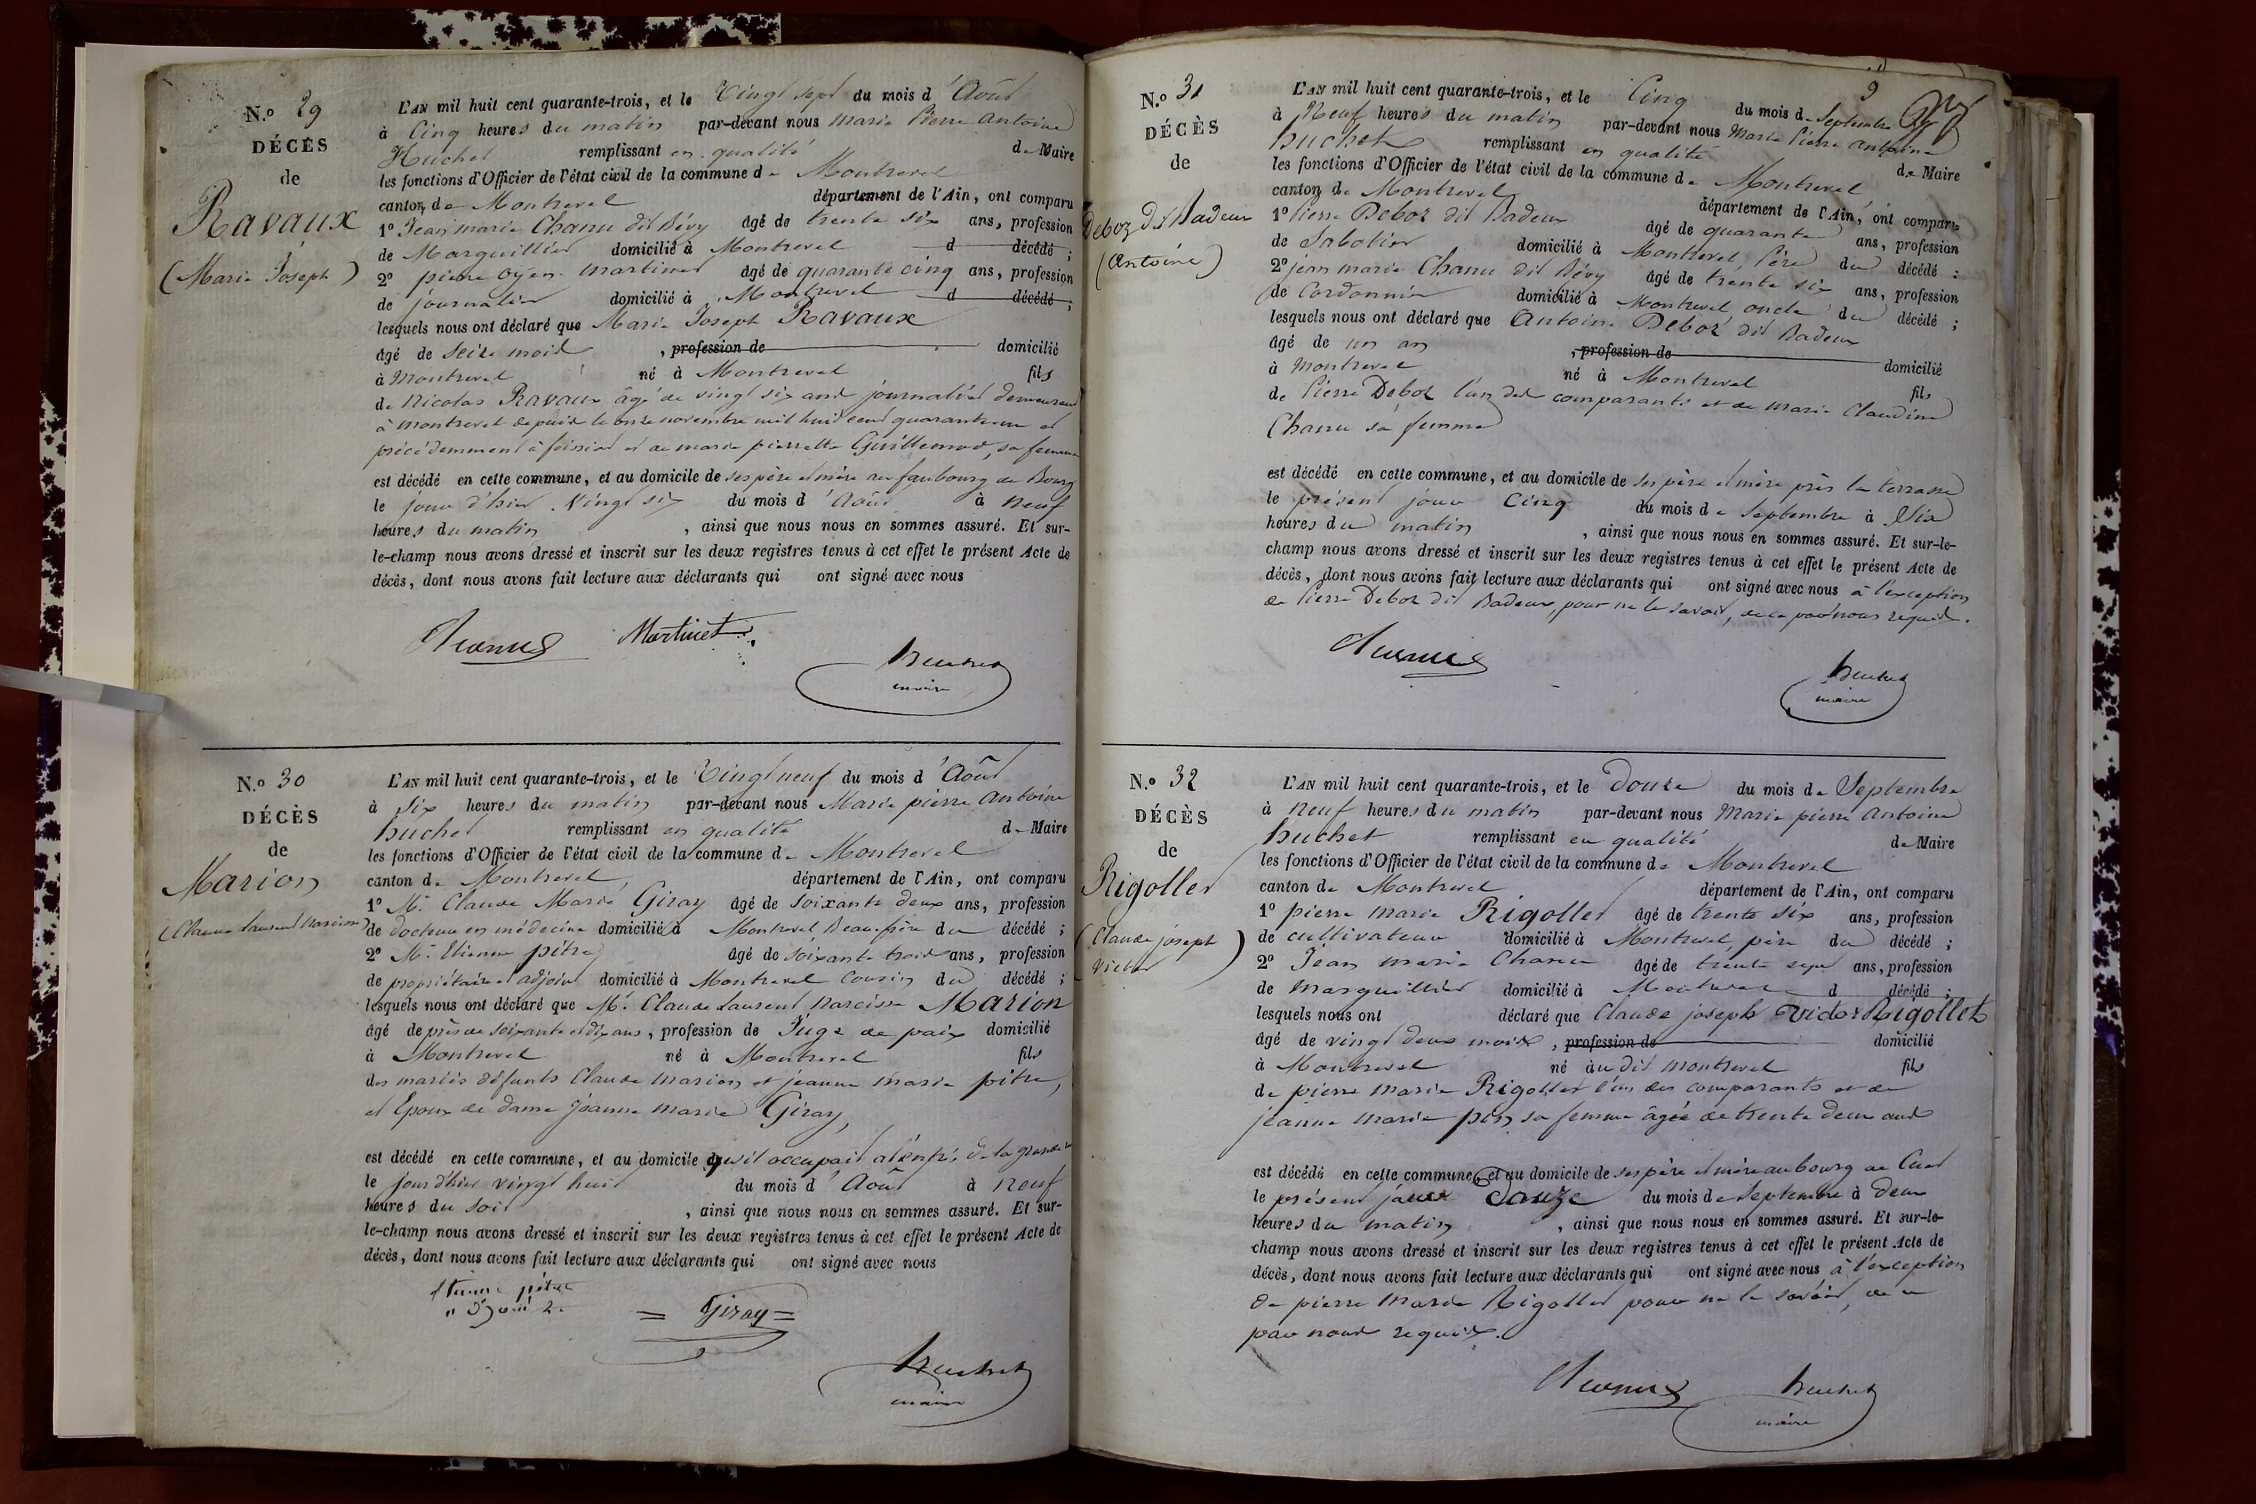 N.º 29
DÉCÈS
de
Ravaux
(Marie Joseph)
L'AN mil huit cent quarante-trois, et le Vingt sept du mois d'Août
à Cinq heures du matin par-devant nous Marie Pierre Antoine
Huchet remplissant en qualité de Maire
les fonctions d'Officier de l'état civil de la commune de Montrevel
canton de Montrevel département de l'Ain, ont comparu
1º Jean marie Chanu dit Bévy âgé de trente six ans, profession
de Marguillier domicilié à Montrevel d décédé ;
2º pierre martinet âgé de quarante cinq ans, profession
de journalier domicilié à Montrevel d décédé ;
lesquels nous ont déclaré que Marie Joseph Ravaux
âgé de seize mois , profession de domicilié
à Montrevel né à Montrevel fils
de Nicolas Ravaux âgé de vingt six ans journalier demeurant
à montrevel depuis le onze novembre mil huit cent quarante un et
précédemment à et de marie pierrette Guillemod, sa femme
est décédé en cette commune, et au domicile de ses père et mère au faubourg de Bourg
le jour d'hier Vingt six du mois d'Août à neuf
heures du matin , ainsi que nous nous en sommes assuré. Et sur-
le-champ nous avons dressé et inscrit sur les deux registres tenus à cet effet le présent Acte de
décès, dont nous avons fait lecture aux déclarants qui ont signé avec nous
Chanu Martinet
huchet
maire
N.º 30
DÉCÈS
de
Marion
(Claude Laurent Narcisse)
L'AN mil huit cent quarante-trois, et le Vingt neuf du mois d'Août
à six heures du matin par-devant nous Marie pierre Antoine
huchet remplissant en qualité de Maire
les fonctions d'Officier de l'état civil de la commune de Montrevel
canton de Montrevel, département de l'Ain, ont comparu
1º Mr. Claude Marie Giray âgé de soixante deux ans, profession
de docteur en médecine domicilié à Montrevel Beau-frère du décédé ;
2º Mr. Etienne pitre âgé de soixante trois ans, profession
de propriétaire et adjoint domicilié à Montrevel Cousin du décédé ;
lesquels nous ont déclaré que Mr. Claude Laurent Narcisse Marion
âgé de près de soixante et dix ans, profession de Juge de paix domicilié
à Montrevel né à Montrevel fils
des mariés défunts Claude Marion et jeanne marie pitre,
et Epoux de dame Jeanne marie Giray,
est décédé en cette commune, et au domicile qu'il occupait de la grande
le jour d'hier vingt huit du mois d'Août à neuf
heures du soir , ainsi que nous nous en sommes assuré. Et sur-
le-champ nous avons dressé et inscrit sur les deux registres tenus à cet effet le présent Acte de
décès, dont nous avons fait lecture aux déclarants qui ont signé avec nous
Etienne pitre
= Giray =
huchet
maire
9
N.º 31
DÉCÈS
de
Deboz dit Badeur
(Antoine)
L'AN mil huit cent quarante-trois, et le Cinq du mois de Septembre
à Neuf heures du matin par-devant nous Marie Pierre Antoine
huchet remplissant en qualité de Maire
les fonctions d'Officier de l'état civil de la commune de Montrevel
canton de Montrevel département de l'Ain, ont comparu
1º Pierre Deboz dit Badeur âgé de quarante ans, profession
de Sabotier domicilié à Montrevel, Père du décédé ;
2º jean marie Chanu dit Bévy âgé de trente six ans, profession
de Cordonnier domicilié à Montrevel, oncle du décédé ;
lesquels nous ont déclaré que Antoine Deboz dit Badeur
âgé de un an , profession de domicilié
à Montrevel né à Montrevel fils
de Pierre Deboz l'un des comparants et de Marie Claudine
Chanu sa femme
est décédé en cette commune, et au domicile de ses père et mère près la terrasse
le présent jour Cinq du mois de Septembre à Six
heures du matin , ainsi que nous nous en sommes assuré. Et sur-le-
champ nous avons dressé et inscrit sur les deux registres tenus à cet effet le présent Acte de
décès, dont nous avons fait lecture aux déclarants qui ont signé avec nous à l'exception
de Pierre Deboz dit Badeur, pour ne le savoir, de ce par nous requis.
Chanu
huchet
maire
N.º 32
DÉCÈS
de
Rigollet
(Claude joseph
Victor)
L'AN mil huit cent quarante-trois, et le douze du mois de Septembre
à neuf heures du matin par-devant nous Marie pierre Antoine
huchet remplissant en qualité de Maire
les fonctions d'Officier de l'état civil de la commune de Montrevel
canton de Montrevel département de l'Ain, ont comparu
1º pierre marie Rigollet âgé de trente six ans, profession
de cultivateur domicilié à Montrevel, père du décédé ;
2º Jean marie Chanu âgé de trente sept ans, profession
de marguillier domicilié à Montrevel d décédé ;
lesquels nous ont déclaré que Claude joseph Victor Rigollet
âgé de vingt deux mois, profession de domicilié
à Montrevel né au dit montrevel fils
de pierre marie Rigollet l'un des comparants et de
jeanne marie pin sa femme âgée de trente deux ans
est décédé en cette commune, et au domicile de ses père et mère au bourg de Cuet
le présent jour douze du mois de Septembre à deux
heures du matin , ainsi que nous nous en sommes assuré. Et sur-le-
champ nous avons dressé et inscrit sur les deux registres tenus à cet effet le présent Acte de
décès, dont nous avons fait lecture aux déclarants qui ont signé avec nous à l'exception
de pierre marie Rigollet pour ne le savoir, de ce
par nous requis.
Chanu huchet
maire